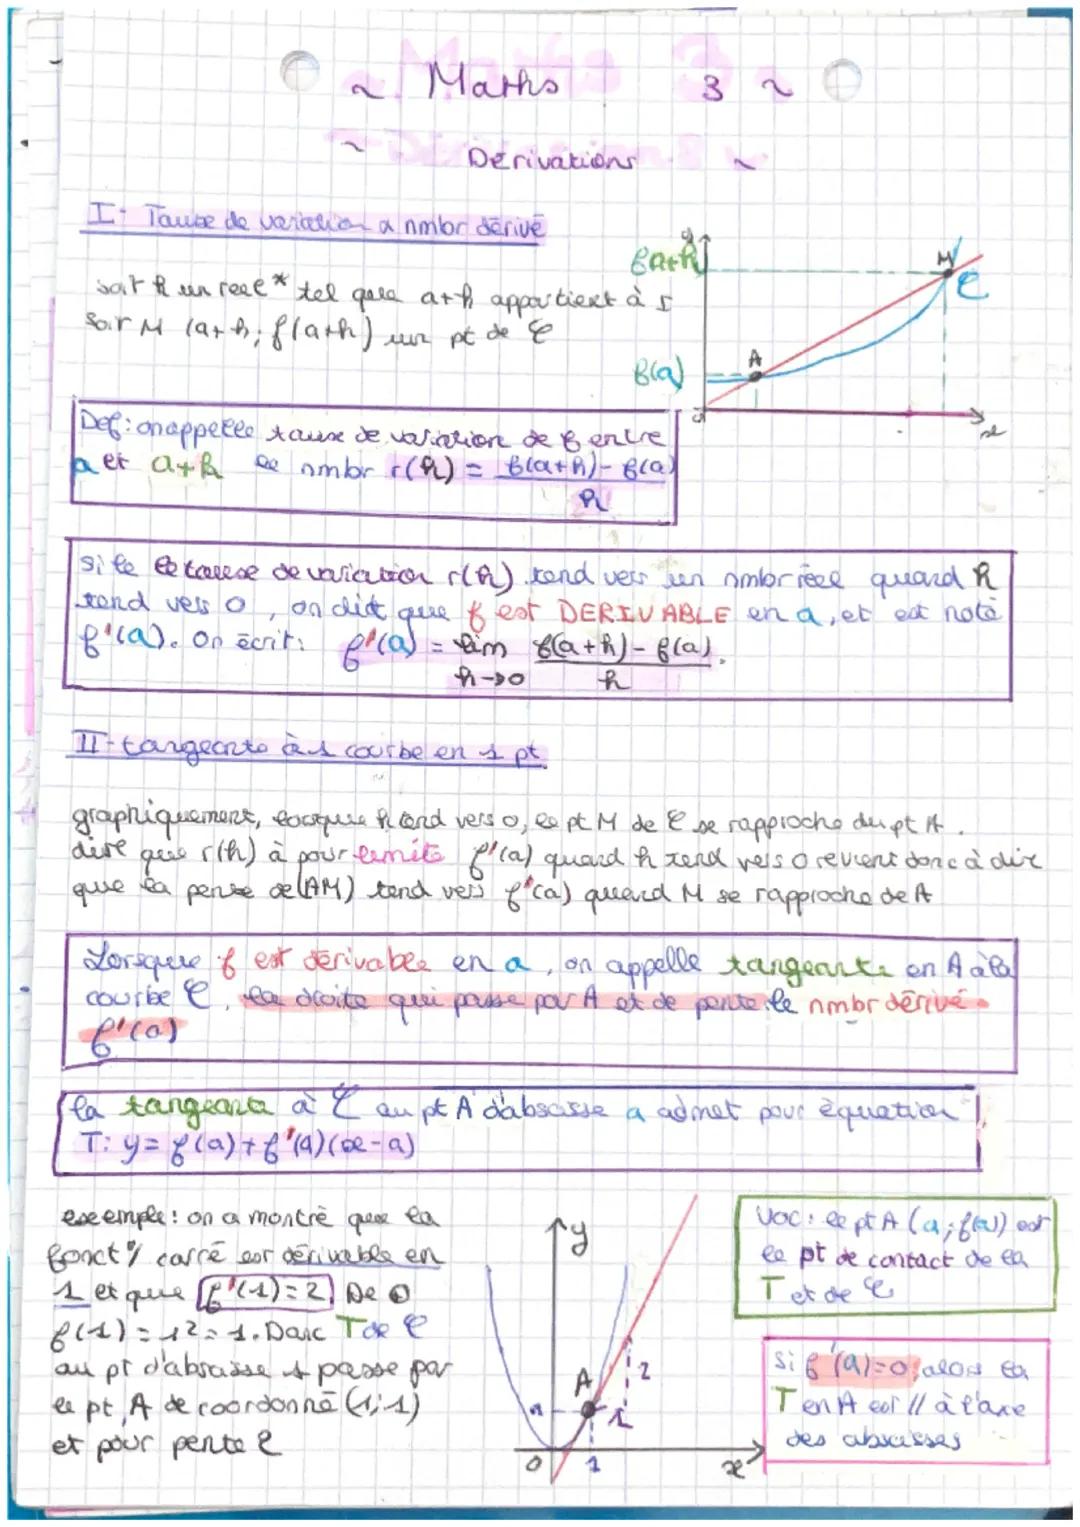 ~ Maths 3 ~
~ Dérivations ~
I- Taux de variation a nmbr dérivé
soit h un réel* tel que a+h appartient à I
Soit M (a+h; f(a+h)) un pt de C
f(a+h)
f(a)
M
C
A
y
x
Def: on appelle taux de variation de f entre
a et a+h le nmbr r(h) = f(a+h)-f(a)
h
si le le taux de variation r(h) tend vers un nmbr réel quand h
tend vers 0, on dit que f est DERIVABLE en a, et est noté
f'(a). On écrit: f'(a) = lim f(a+h)-f(a).
h→0 h
II- tangeante à 1 courbe en 1 pt
graphiquement, lorsque h tend vers 0, le pt M de C se rapproche du pt A.
dire que r(h) à pour limite f'(a) quand h tend vers 0 revient donc à dir
que la pente de (AM) tend vers f'(a) quand M se rapproche de A
Lorsque f est dérivable en a, on appelle tangeante en A à la
courbe C, la droite qui passe par A et de pente le nmbr dérivé
f'(a)
la tangeante à C au pt A d'abscisse a admet pour équation
T: y = f(a)+f'(a)(x-a)
exemple: on a montré que la
fonct° carré est dérivable en
1 et que f'(1)=2. De
f(1)=1²=1. Donc T de C
au pt d'abscisse 1 passe par
le pt A de coordonné (1;1)
et pour pente 2
y
A
2
1
1
0
1
x
Voc: le pt A (a;f(a)) est
le pt de contact de la
T et de C
Si f'(a)=0, alors la
T en A est // à l'axe
des abscisses